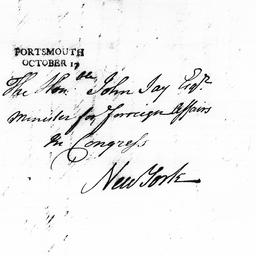 PORTSMOUTH
OCTOBER 17
The Honble John Jay Esqr.
Minister for Forreign Affairs
in Congress
New York